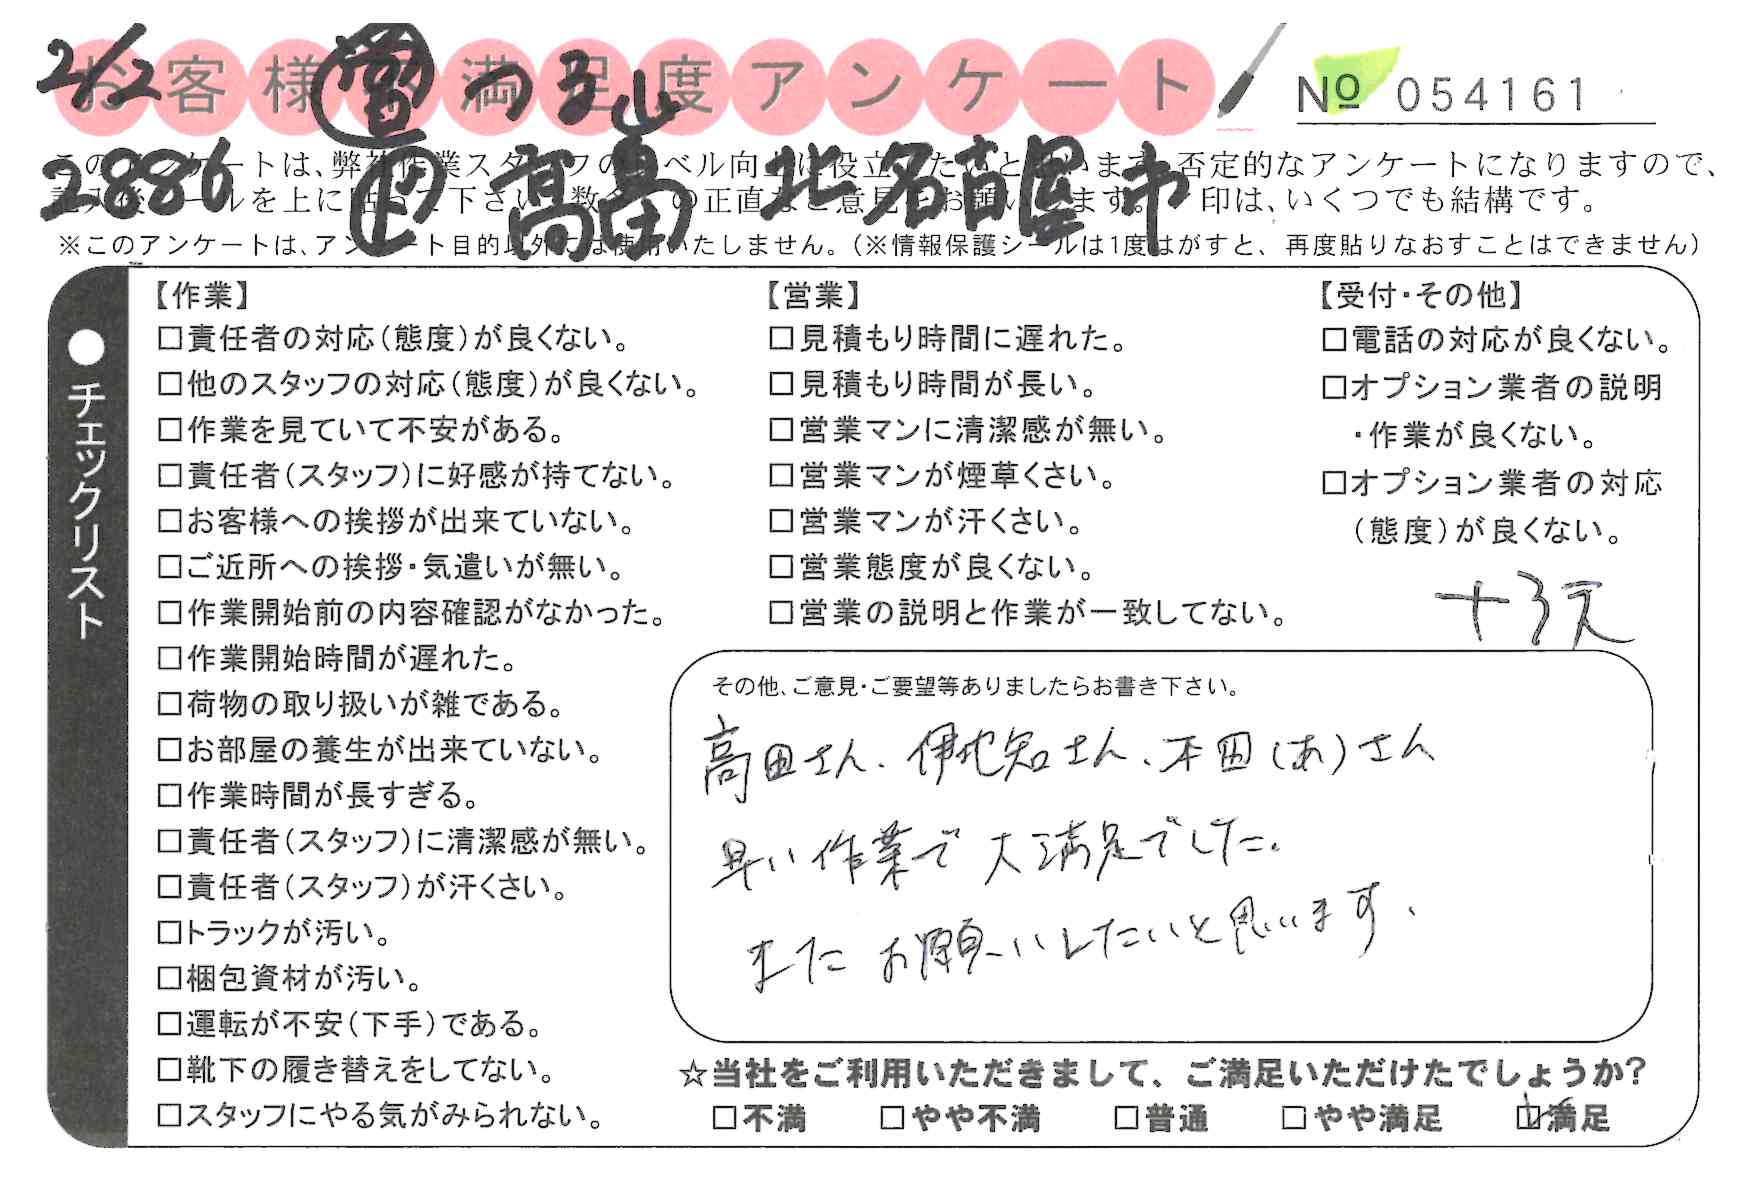 2/2 営
お客様満足度アンケート
№ 054161
2886 高畠 北名古屋市
このアンケートは、弊社作業スタッフのレベル向上に役立 ます。否定的なアンケートになりますので、
記入後シールを上に 下さい。 の正直なご意見をお願いします。 印は、いくつでも結構です。
※このアンケートは、アンケート目的以外には使用いたしません。(※情報保護シールは1度はがすと、再度貼りなおすことはできません)
●チェックリスト
【作業】
□責任者の対応(態度)が良くない。
□他のスタッフの対応(態度)が良くない。
□作業を見ていて不安がある。
□責任者(スタッフ)に好感が持てない。
□お客様への挨拶が出来ていない。
□ご近所への挨拶・気遣いが無い。
□作業開始前の内容確認がなかった。
□作業開始時間が遅れた。
□荷物の取り扱いが雑である。
□お部屋の養生が出来ていない。
□作業時間が長すぎる。
□責任者(スタッフ)に清潔感が無い。
□責任者(スタッフ)が汗くさい。
□トラックが汚い。
□梱包資材が汚い。
□運転が不安(下手)である。
□靴下の履き替えをしてない。
□スタッフにやる気がみられない。
【営業】
□見積もり時間に遅れた。
□見積もり時間が長い。
□営業マンに清潔感が無い。
□営業マンが煙草くさい。
□営業マンが汗くさい。
□営業態度が良くない。
□営業の説明と作業が一致してない。
【受付・その他】
□電話の対応が良くない。
□オプション業者の説明
・作業が良くない。
□オプション業者の対応
(態度)が良くない。
+3点
その他、ご意見・ご要望等ありましたらお書き下さい。
高田さん、伊地知さん、本田(あ)さん
早い作業で大満足でした。
またお願いしたいと思います。
☆当社をご利用いただきまして、ご満足いただけたでしょうか?
□不満 □やや不満 □普通 □やや満足 ☑満足